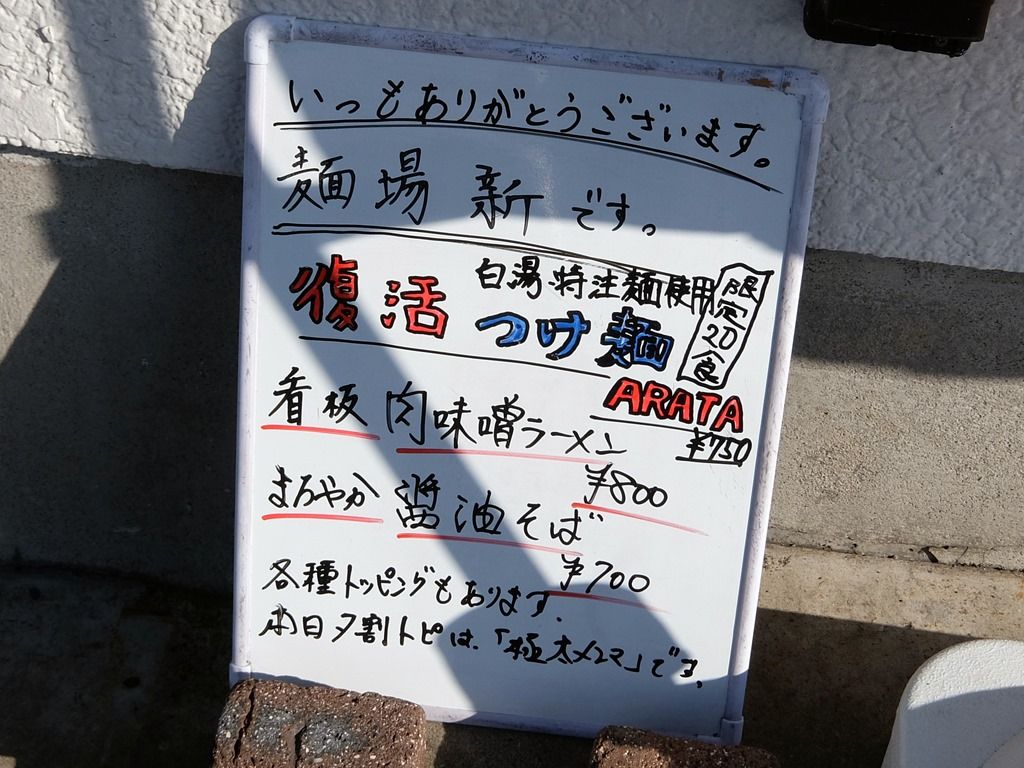 いつもありがとうございます。
麺場 新です。
復活
白湯・特注麺使用
つけ麺
限定20食
ARATA
¥750
看板 肉味噌ラーメン
¥800
まろやか 醤油そば
¥700
各種トッピングもあります.
本日夕割トピは、「極太メンマ」です。